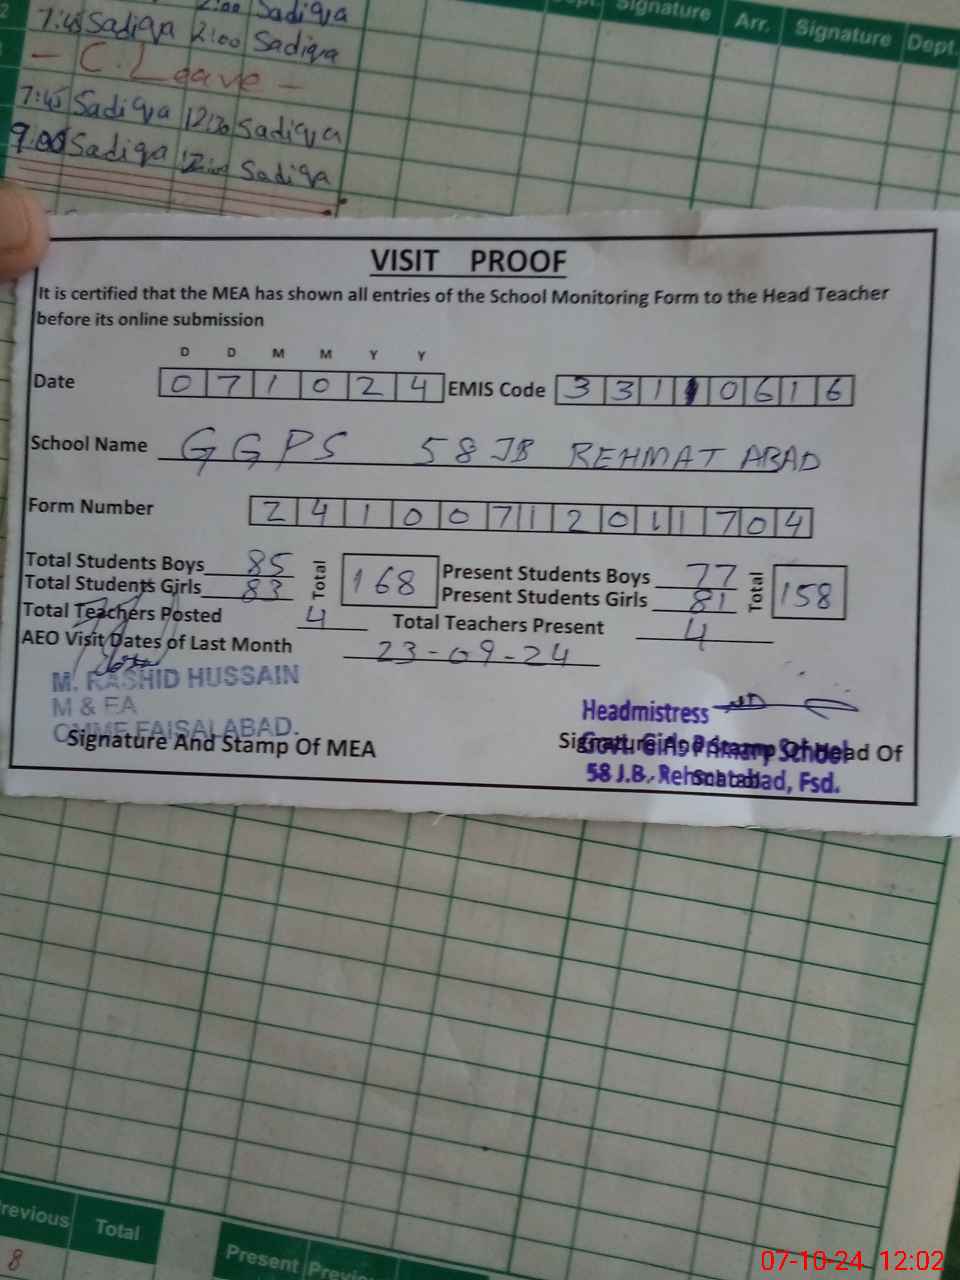 2:00 Sadiqa
7:45 Sadiqa 2:00 Sadiqa
- C. Leave -
7:45 Sadiqa 12:30 Sadiqa
9:00 Sadiqa 12:00 Sadiqa
Signature Arr. Signature Dept.
VISIT PROOF
It is certified that the MEA has shown all entries of the School Monitoring Form to the Head Teacher
before its online submission
D D M M Y Y
Date 0 7 1 0 2 4 EMIS Code 3 3 1 1 0 6 1 6
School Name GGPS 58 JB REHMAT ABAD
Form Number 2 4 1 0 0 7 1 2 0 1 1 7 0 4
Total Students Boys 85 Total 168 Present Students Boys 77 Total 158
Total Students Girls 83 Present Students Girls 81
Total Teachers Posted 4 Total Teachers Present 4
AEO Visit Dates of Last Month 23-09-24
M. RASHID HUSSAIN
M & EA
CMMF FAISALABAD.
Signature And Stamp Of MEA
Headmistress
Signature And Stamp Of Head Of
School
Govt. Girls Primary School
58 J.B. Rehmatabad, Fsd.
Previous Total
8
Present Previous
07-10-24 12:02